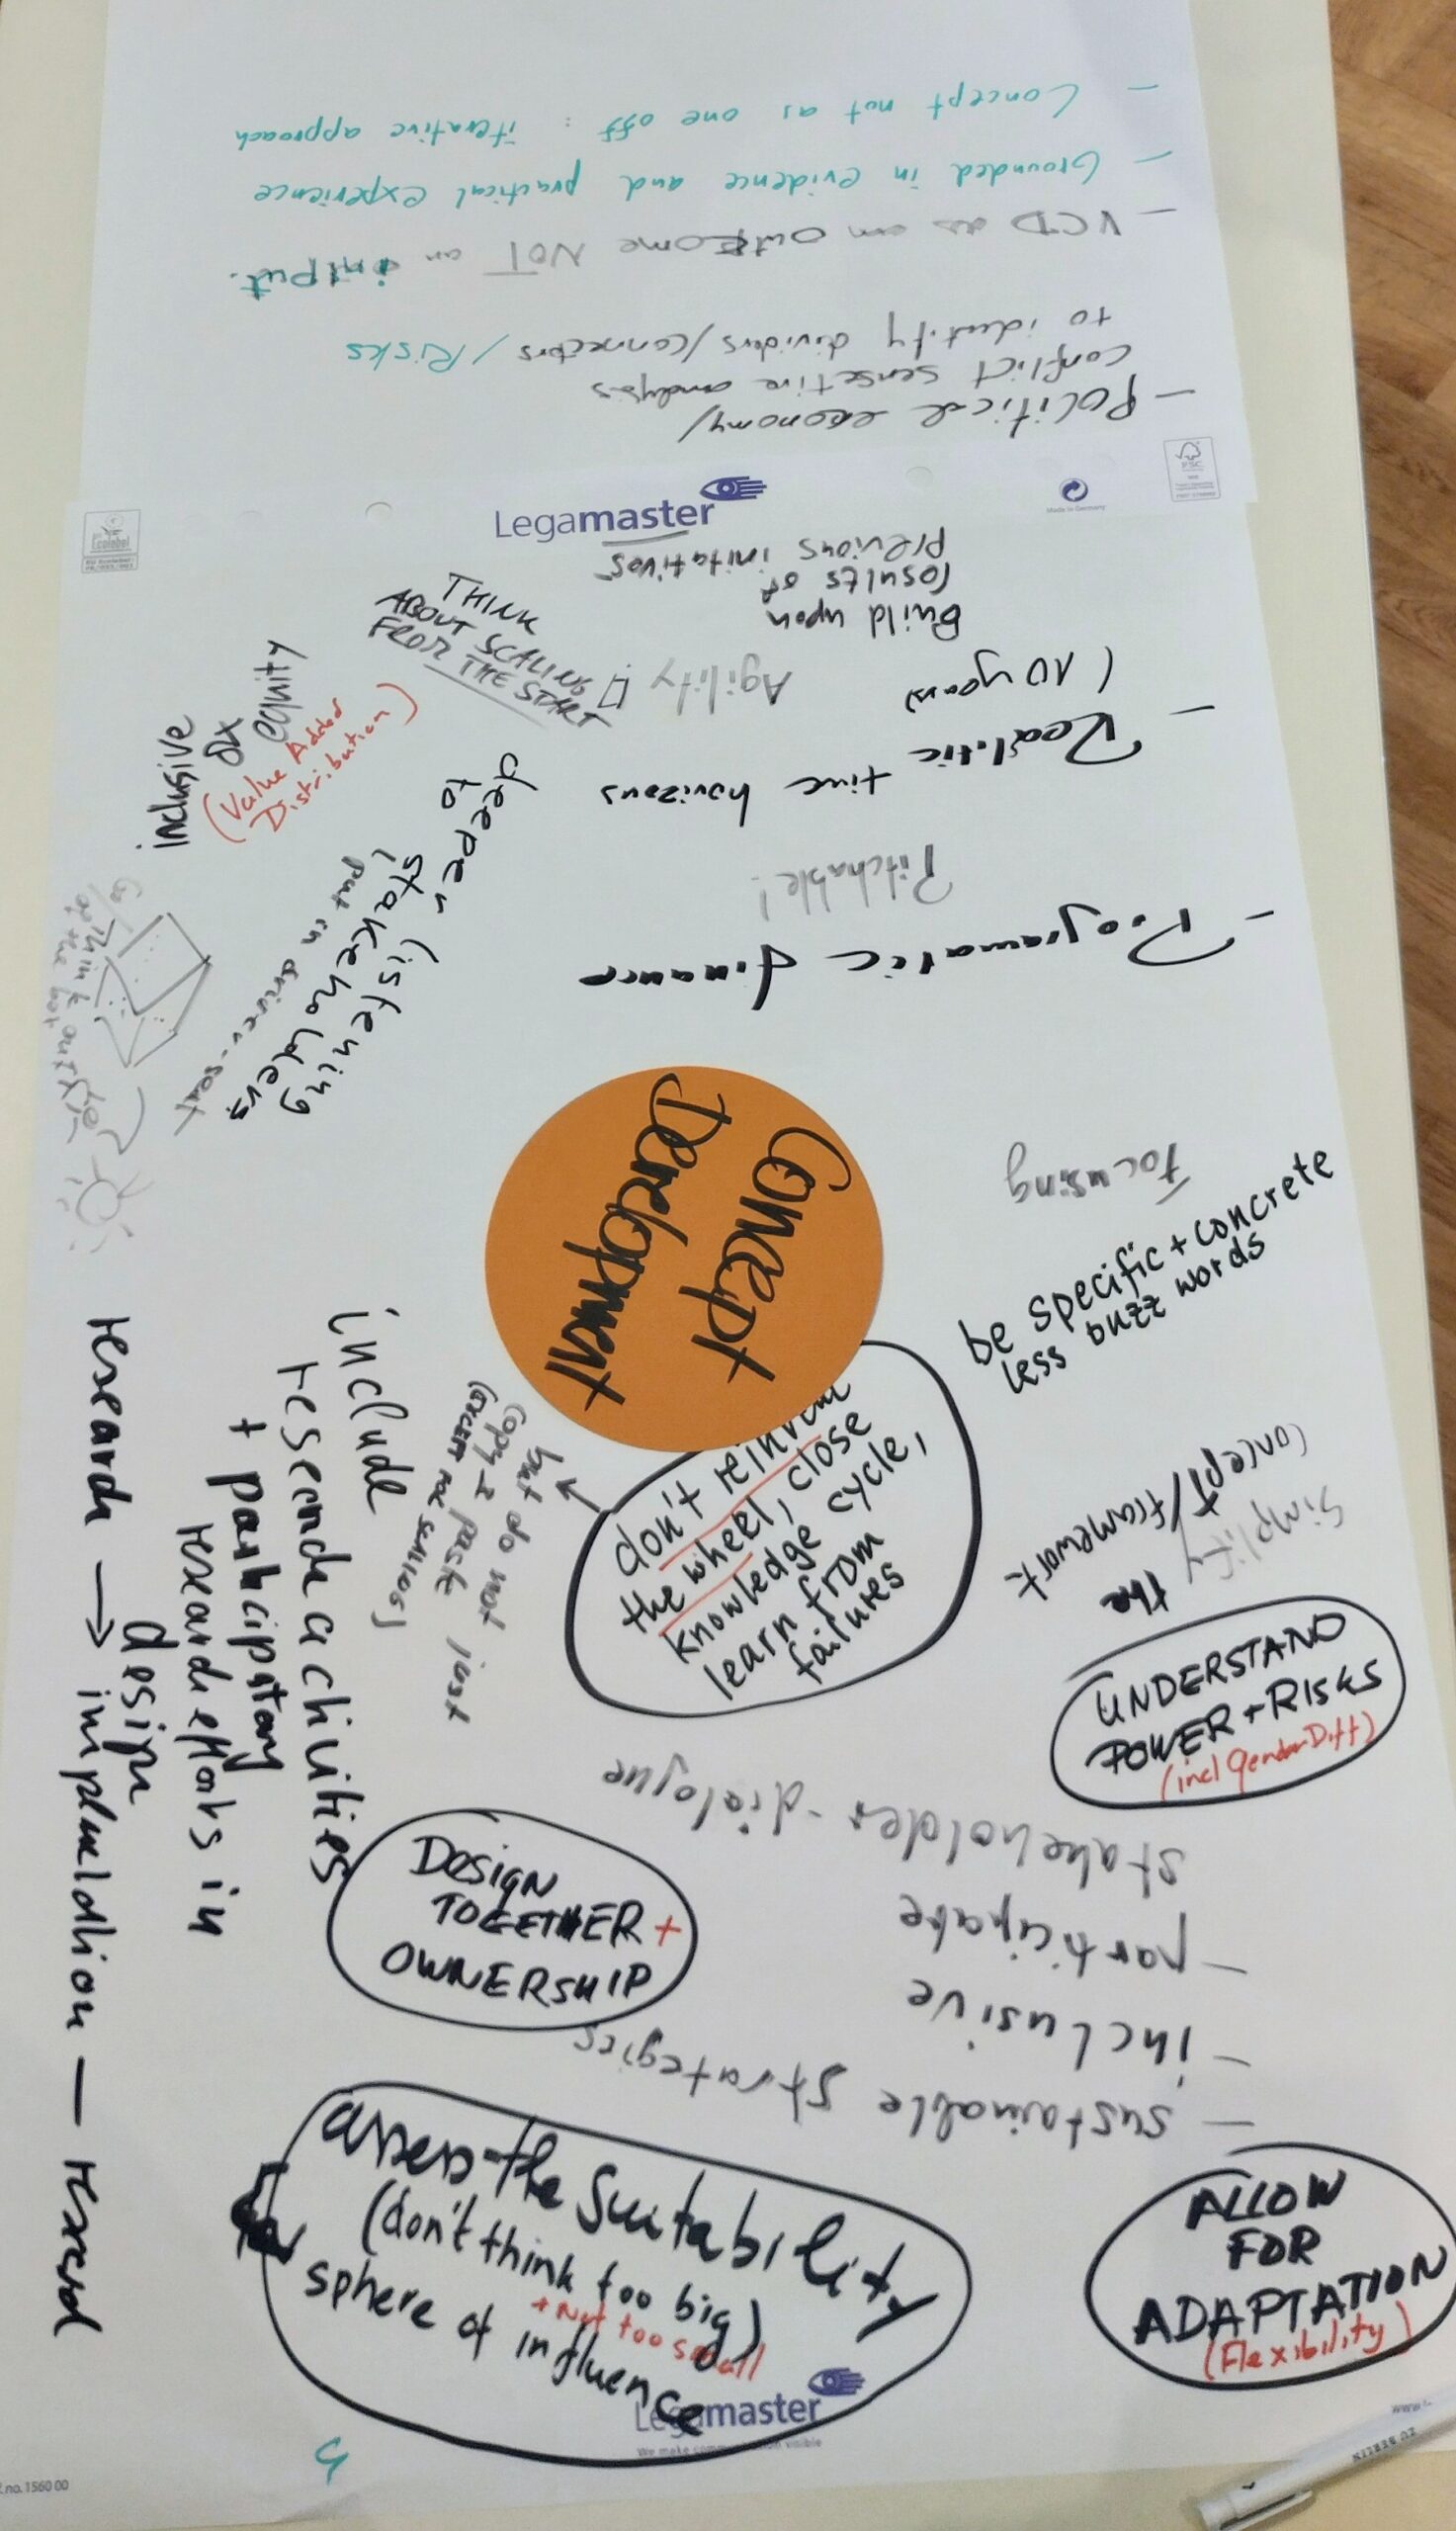 - Concept not as one off : iterative approach
- Grounded in evidence and practical experience
- VCD as an outcome NOT an input.
- Political economy/
conflict sensetive analysis
to identify dividers/connectors /Risks
FSC
Made in Germany
Legamaster
Ecolabel
Build upon
results of
previous initatives
THINK
ABOUT SCALING
FROM THE START
Agility
- Realistic time horizons
(10 years)
inclusive
&
equity
(Value Added
Distribution)
Pitchable!
- Programatic finance
deeper listening
to stakeholders
put in driver-seat
Think out
of the box
Concept
Development
Focusing
be specific + concrete
less buzz words
don't reinvent
the wheel, close
knowledge cycle,
learn from
failures
but do not just
copy & paste
simplify
the
concept/framework
UNDERSTAND
POWER + RISKS
(incl GenderDiff)
include
research activities
+ participatory
research efforts in
design
research → implementation — research
stakeholder-dialogue
- participate
- inclusive
- sustainable strategies
DESIGN
TOGETHER +
OWNERSHIP
assess the suitability
(don't think too big)
+ Not too small
sphere of influence
ALLOW
FOR
ADAPTATION
(Flexibility)
Legamaster
We make communication visible
5
.no. 1560 00